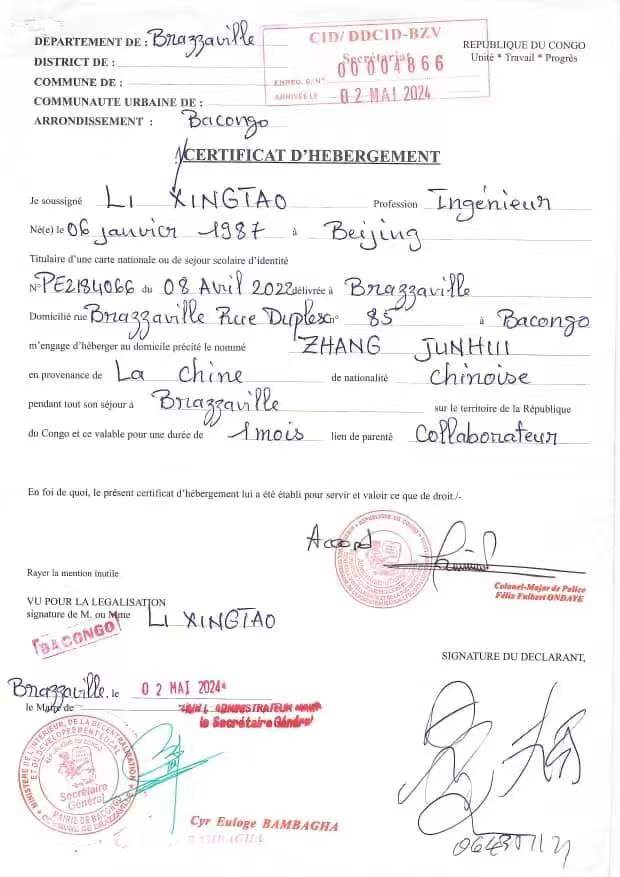 DEPARTEMENT DE : Brazzaville
DISTRICT DE :
COMMUNE DE :
COMMUNAUTE URBAINE DE :
ARRONDISSEMENT : Bacongo
CID/ DDCID-BZV
Secrétariat
00004866
ENREG. S/N°
ARRIVEE LE 02 MAI 2024
REPUBLIQUE DU CONGO
Unité * Travail * Progrès
CERTIFICAT D'HEBERGEMENT
Je soussigné LI XINGTAO Profession Ingénieur
Né(e) le 06 janvier 1987 à Beijing
Titulaire d'une carte nationale ou de sejour scolaire d'identité
N° PE2184066 du 08 Avril 2022 délivrée à Brazzaville
Domicilié rue Brazzaville Rue Duplex n° 85 à Bacongo
m'engage d'héberger au domicile précité le nommé ZHANG JUNHUI
en provenance de La Chine de nationalité Chinoise
pendant tout son séjour à Brazzaville sur le territoire de la République
du Congo et ce valable pour une durée de 1 mois lien de parenté Collaborateur
En foi de quoi, le présent certificat d'hébergement lui a été établi pour servir et valoir ce que de droit./-
Accord
Colonel-Major de Police
Félix Fulbert ONDAYE
Rayer la mention inutile
VU POUR LA LEGALISATION
signature de M. ou Mme LI XINGTAO
BACONGO
SIGNATURE DU DECLARANT,
Brazzaville, le 02 MAI 2024
le Maire de
ADMINISTRATEUR MAIRE
le Secrétaire Général
MINISTERE DE L'INTERIEUR, DE LA DECENTRALISATION
ET DU DEVELOPPEMENT LOCAL
REPUBLIQUE DU CONGO
Secrétaire
Général
MAIRIE DE BACONGO
COMMUNE DE BRAZZAVILLE
Cyr Euloge BAMBAGHA
BAMBAGHA